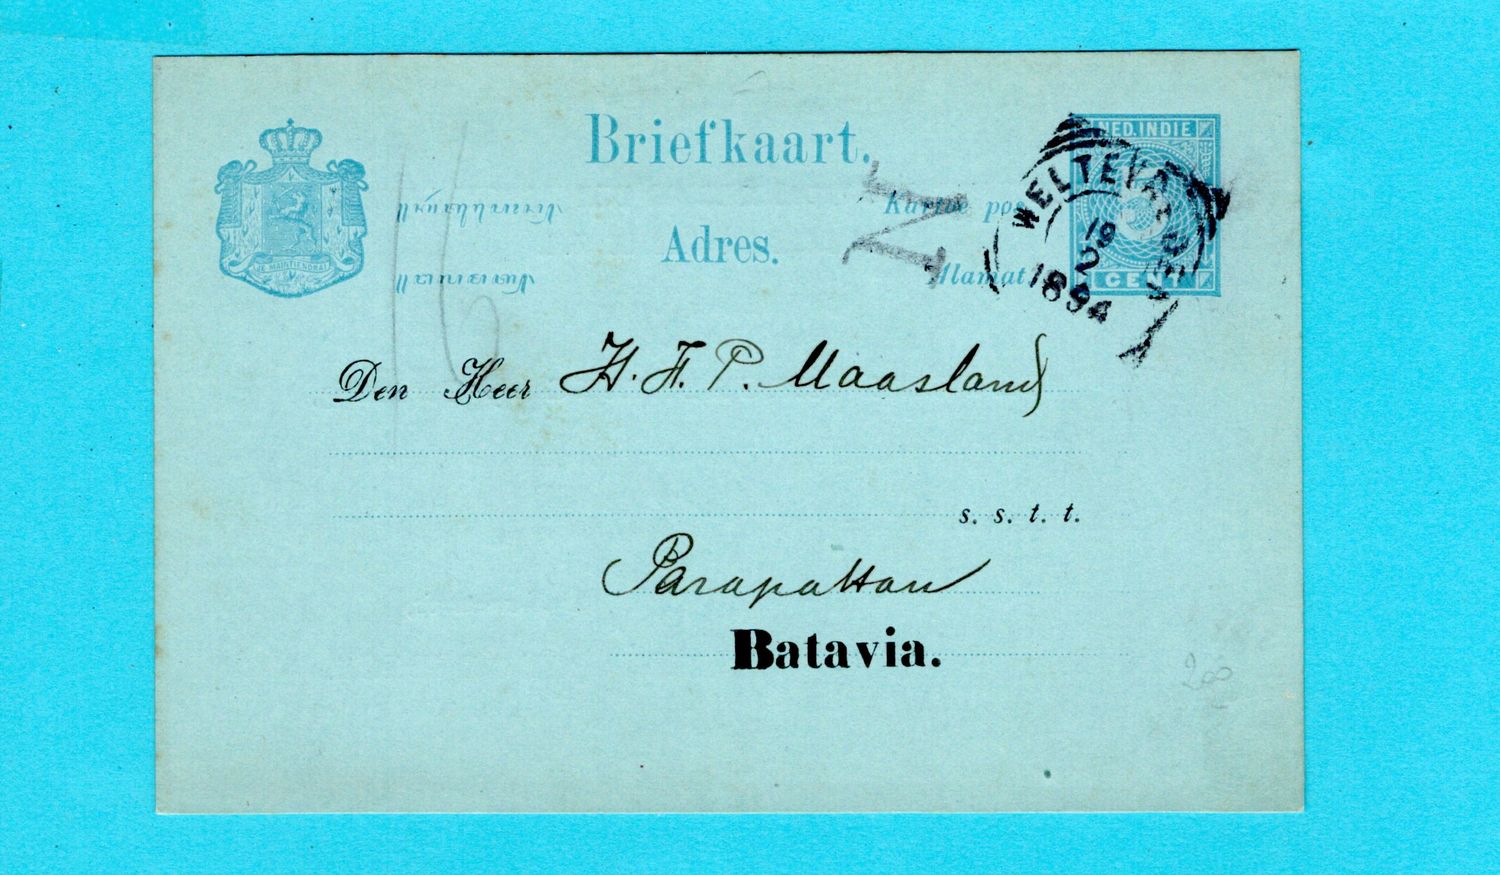 Briefkaart.
Kartoe pos
Adres.
Alamat
NED. INDIE
CENT
JE MAINTIENDRAI
WELTEVREDEN
19
2
1894
N
16
Den Heer H. F. P. Maasland
s. s. t. t.
Parapattan
Batavia.
200